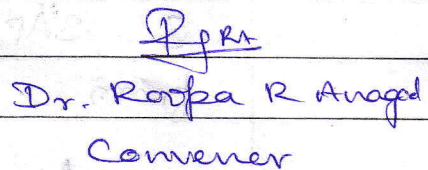 Dr. Roopa R Anagod
Convener